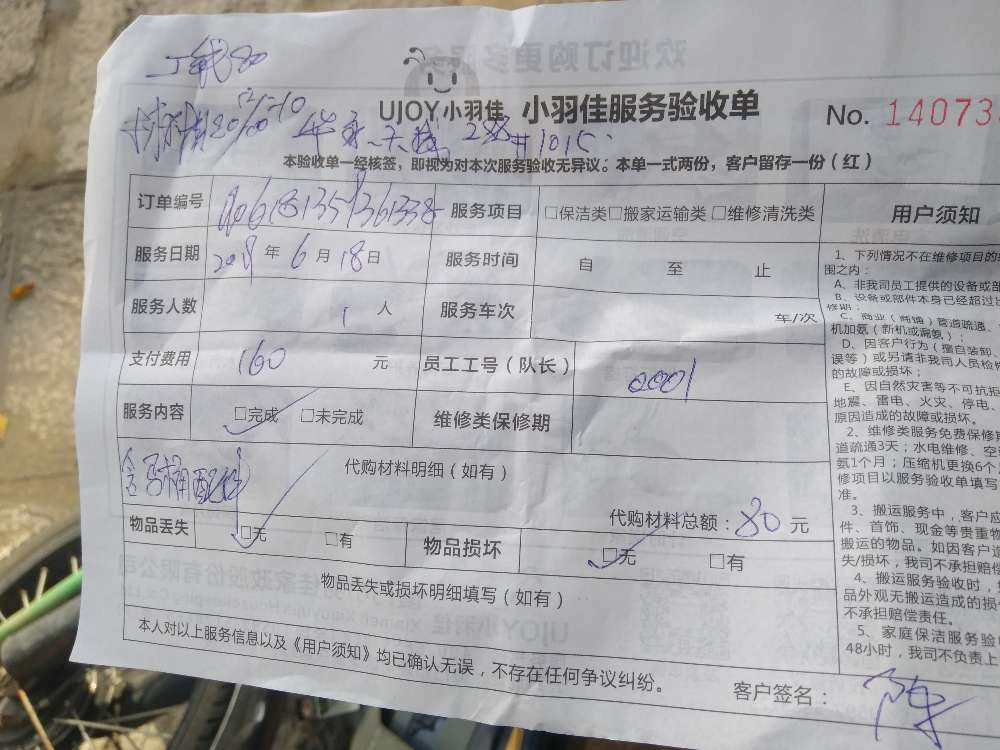 工钱80
UJOY小羽佳 小羽佳服务验收单 No. 14073
#1015
本验收单一经核签,即视为对本次服务验收无异议。本单一式两份,客户留存一份(红)
订单编号 服务项目 □保洁类□搬家运输类□维修清洗类 用户须知
服务日期 2018年6月18日 服务时间 自 至 止
服务人数 1人 服务车次 车/次
支付费用 160元 员工工号(队长) 0001
服务内容 □完成 □未完成 维修类保修期
代购材料明细(如有)
代购材料总额:80元
物品丢失 □无 □有 物品损坏 □无 □有
物品丢失或损坏明细填写(如有)
本人对以上服务信息以及《用户须知》均已确认无误,不存在任何争议纠纷。
客户签名:
1、下列情况不在维修项目的
围之内:
A、非我司员工提供的设备或部
B、设备或部件本身已经超过
修期;
C、商业(商铺)管道疏通、
机加氨(新机或漏氨);
D、因客户行为(擅自装卸、
误等)或另请非我司人员检
的故障或损坏;
E、因自然灾害等不可抗拒
地震、雷电、火灾、停电、
原因造成的故障或损坏。
2、维修类服务免费保修期
道疏通3天;水电维修、空
氨1个月;压缩机更换6个
修项目以服务验收单填写
准。
3、搬运服务中,客户应
件、首饰、现金等贵重物
搬运的物品。如因客户
失/损坏,我司不承担赔偿
4、搬运服务验收时,
品外观无搬运造成的损
不承担赔偿责任。
5、家庭保洁服务验
48小时,我司不负责上